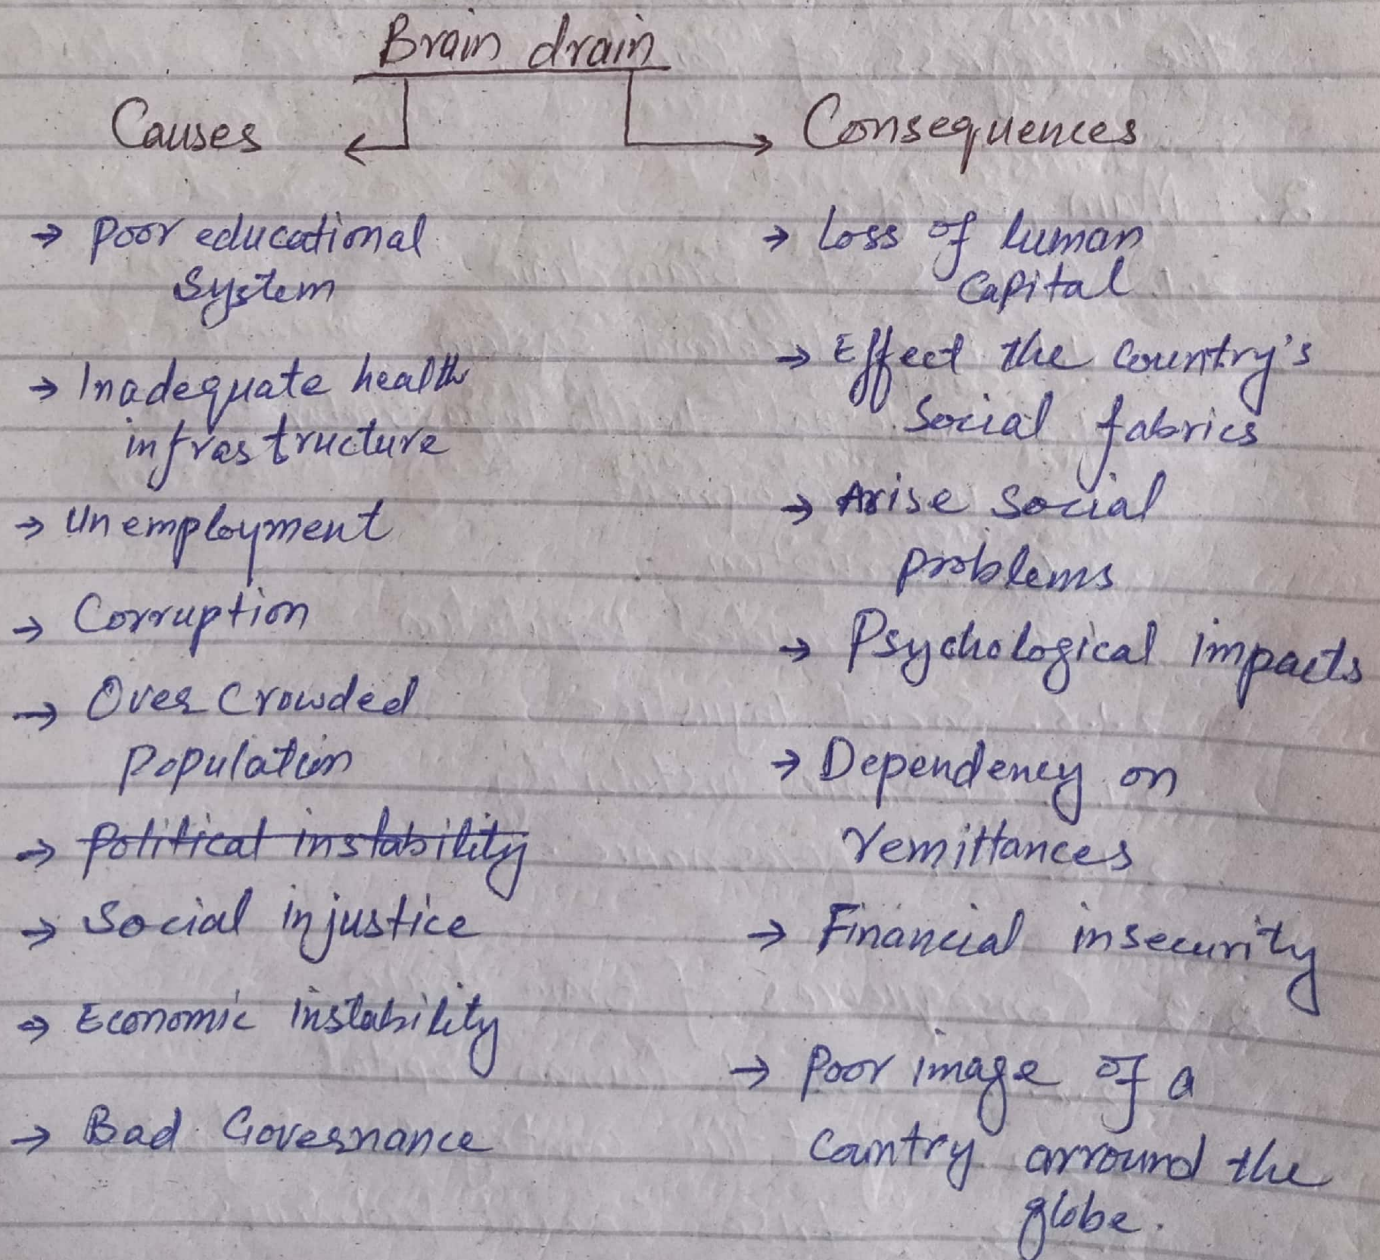 Brain drain
Causes
Consequences
→ Poor educational
System
→ Inadequate health
infrastructure
→ Unemployment
→ Corruption
→ Over Crowded
Population
→ Political instability
→ Social injustice
→ Economic instability
→ Bad Governance
→ Loss of human
Capital
→ Effect the Country's
Social fabrics
→ Arise Social
problems
→ Psychological impacts
→ Dependency on
remittances
→ Financial insecurity
→ Poor image of a
Country arround the
globe.